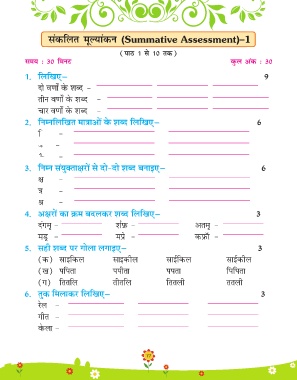 संकलित मूल्यांकन (Summative Assessment)–1
(पाठ 1 से 10 तक)
समय : 30 मिनट कुल अंक : 30
1. लिखिए– 9
दो वर्णों के शब्द –
तीन वर्णों के शब्द –
चार वर्णों के शब्द –
2. निम्नलिखित मात्राओं के शब्द लिखिए– 6
ि –
3. निम्न संयुक्ताक्षरों से दो-दो शब्द बनाइए– 6
क्ष –
त्र –
श्र –
4. अक्षरों का क्रम बदलकर शब्द लिखिए– 3
5. सही शब्द पर गोला लगाइए– 3
(क) साइकिल साइकील साईकिल साईकील
(ख) पपिता पपीता पपता पिपिता
(ग) तितलि तीतलि तितली ततली
6. तुक मिलाकर लिखिए– 3
रेल –
गीत –
केला –